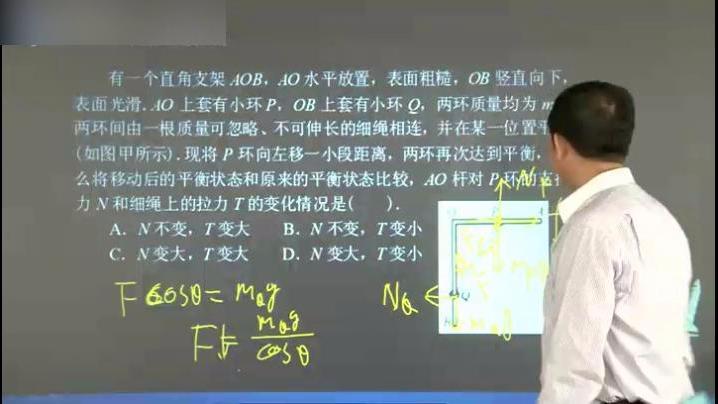 有一个直角支架 AOB，AO 水平放置，表面粗糙，OB 竖直向下，
表面光滑．AO 上套有小环 P，OB 上套有小环 Q，两环质量均为 m
两环间由一根质量可忽略、不可伸长的细绳相连，并在某一位置平
(如图甲所示)．现将 P 环向左移一小段距离，两环再次达到平衡，
么将移动后的平衡状态和原来的平衡状态比较，AO 杆对 P 环的支
力 N 和细绳上的拉力 T 的变化情况是(　　)．
A．N 不变，T 变大　B．N 不变，T 变小
C．N 变大，T 变大　D．N 变大，T 变小
F cosθ = mQg
NQ
F = mQg / cosθ